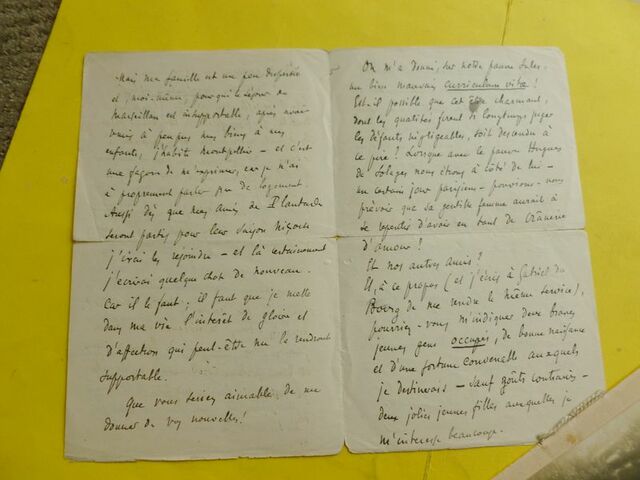 Mais ma famille est un peu dispersée
et, moi-même, pour qui le séjour de
Marseillan est insupportable, après avoir
remis à peu près mes biens à mes
enfants, j'habite Montpellier – et c'est
une façon de m'exprimer, car je n'ai
à proprement parler pas de logement.
Aussi dès que mes amis de Plantade
seront partis pour leur saison
j'irai les rejoindre – et là certainement
j'écrirai quelque chose de nouveau.
Car il le faut ; il faut que je mette
dans ma vie l'intérêt de gloire et
d'affection qui peut-être me la rendront
supportable.
Que vous seriez aimable de me
donner de vos nouvelles !
On m'a donné, sur notre pauvre
un bien mauvais curriculum vitæ !
Est-il possible que cet être charmant,
dont les qualités firent si longtemps juger
les défauts négligeables, soit descendu à
ce pire ? Lorsque avec le pauvre Hugues
de Solages nous étions à côté de lui –
un certain jour parisien – pouvions-nous
prévoir que sa gentille femme aurait à
se repentir d'avoir eu tant de crânerie
d'amour !
Et nos autres amis ?
Et, à ce propos (et j'écris à Gabriel du
Bourg de me rendre le même service),
pourriez-vous m'indiquer deux braves
jeunes gens occupés, de bonne naissance
et d'une fortune convenable auxquels
je destinerais – sauf goûts contraires –
deux jolies jeunes filles auxquelles je
m'intéresse beaucoup.